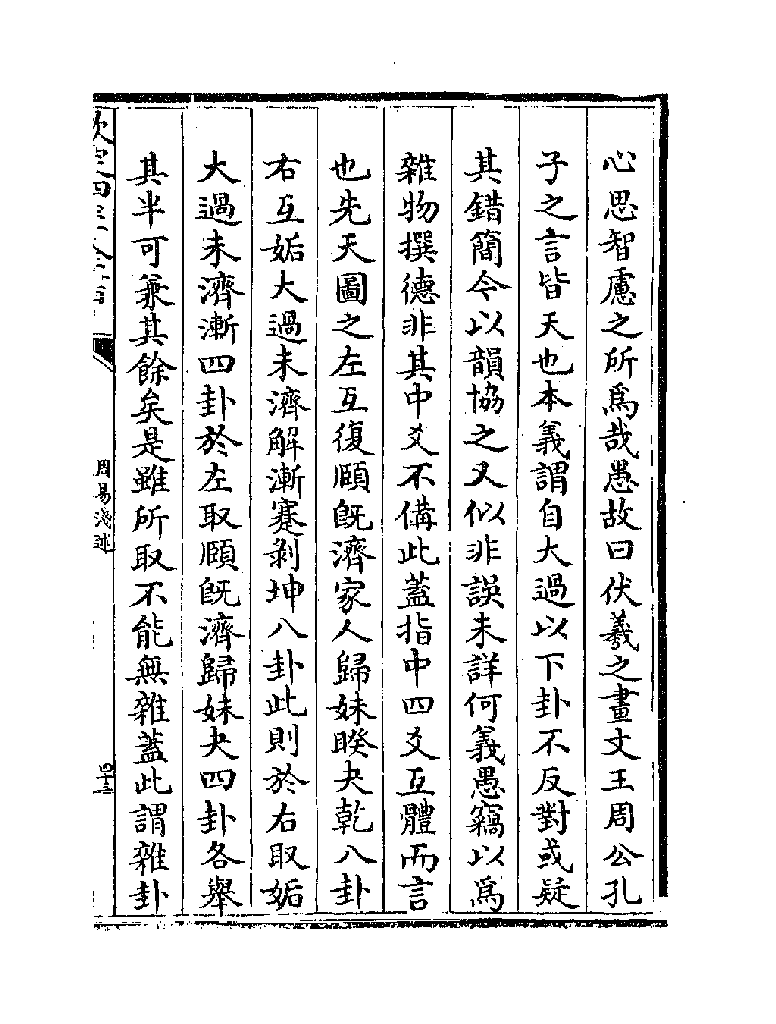 心思智慮之所為哉愚故曰伏羲之畫文王周公孔
子之言皆天也本義謂自大過以下卦不反對或疑
其錯簡今以韻協之又似非誤未詳何義愚竊以為
雜物撰德非其中爻不備此蓋指中四爻互體而言
也先天圖之左互復頤既濟家人歸妹睽夬乾八卦
右互姤大過未濟解漸蹇剝坤八卦此則於右取姤
大過未濟漸四卦於左取頤既濟歸妹夬四卦各舉
其半可兼其餘矣是雖所取不能無雜蓋此謂雜卦
周易淺述
四十三